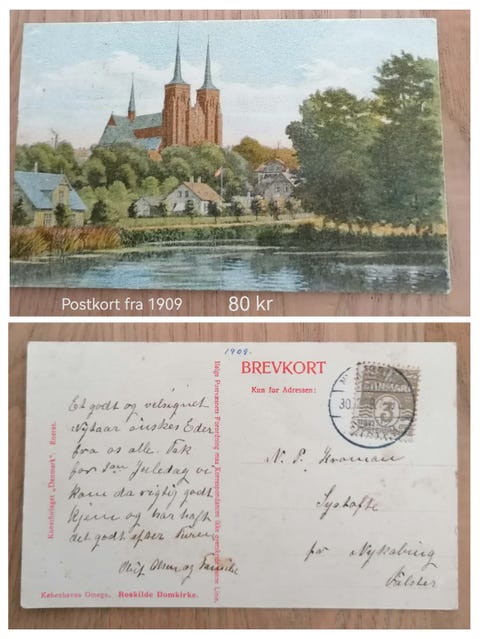 Postkort fra 1909 80 kr
1909.
BREVKORT
Kun for Adressen:
DANMARK
3
30.12
Et godt og velsignet
Nytaar ønskes Eder
fra os alle. Tak
for 1ste Juledag vi
kom da rigtig godt
hjem og har haft
det godt efter Turen
Oluf Olsen og Familie
N. P. Kroman
Systofte
pr Nykøbing
Falster
Kunstforlaget „Danmark“. Eneret.
Ifølge Postvæsenets Forordning maa Korrespondancen ikke overskride denne Linie.
Københavns Omegn. Roskilde Domkirke.